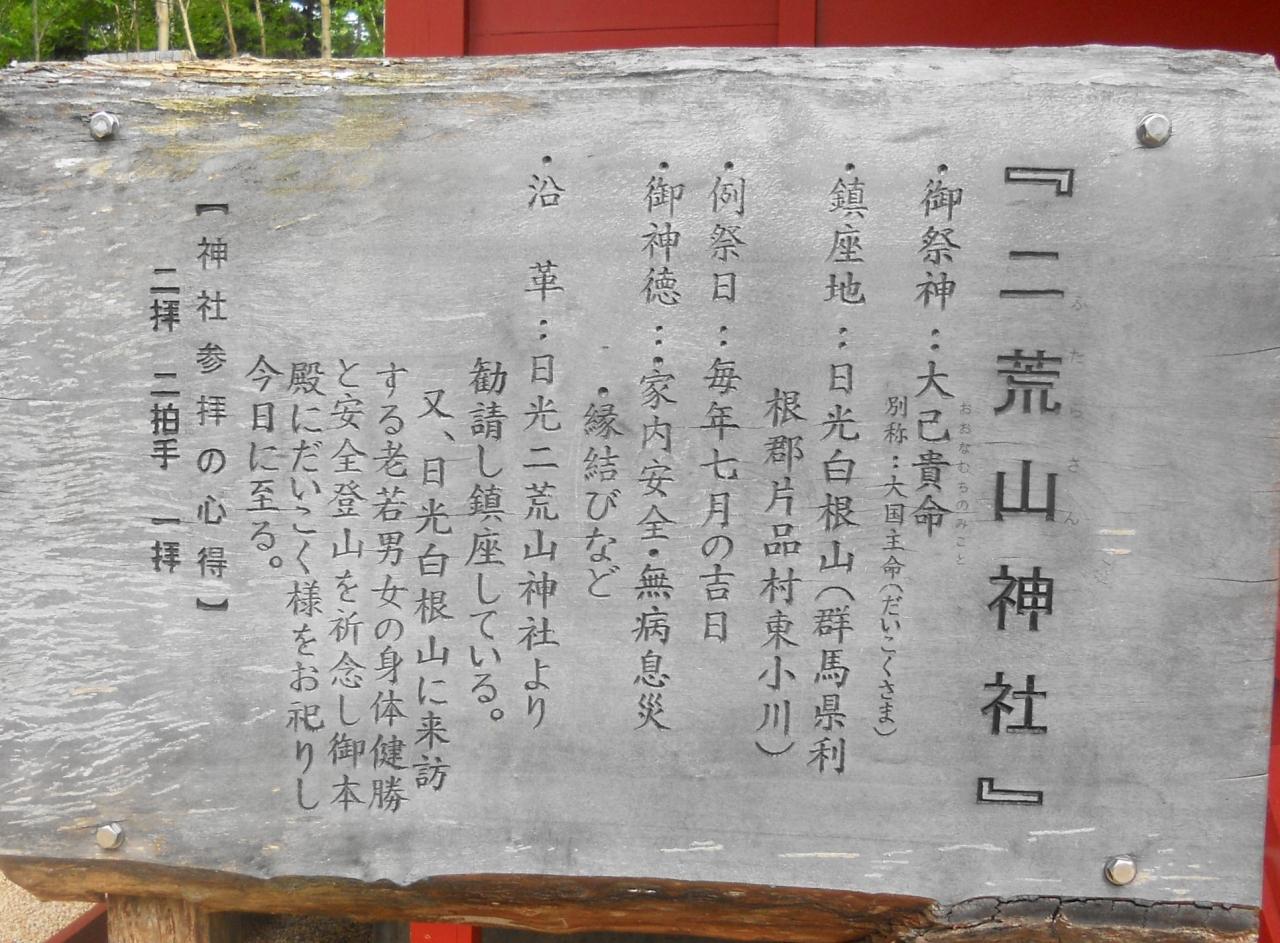 『二荒山神社』
ふたらさん
・御祭神：大己貴命
おおなむちのみこと
別称：大国主命（だいこくさま）
・鎮座地：日光白根山（群馬県利
根郡片品村東小川）
・例祭日：毎年七月の吉日
・御神徳：・家内安全・無病息災
・縁結びなど
・沿　革：日光二荒山神社より
勧請し鎮座している。
又、日光白根山に来訪
する老若男女の身体健勝
と安全登山を祈念し御本
殿にだいこく様をお祀りし
今日に至る。
【神社参拝の心得】
二拝　二拍手　一拝